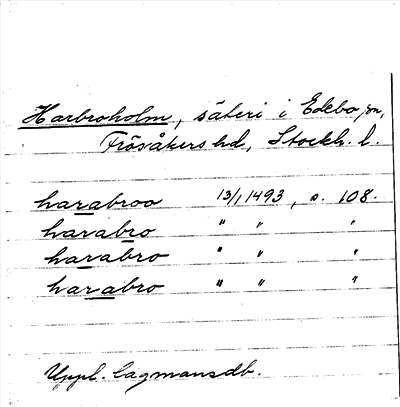 Harbroholm, säteri i Edebo sn,
Frösåkers hd, Stockh. l.
harabroa 13/1 1493, s. 108.
harabro " " "
harabro " " "
harabro " " "
Uppl. lagmansdb.